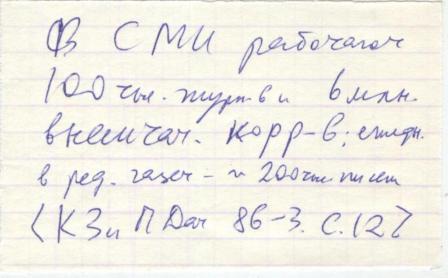 В СМИ работают
100 тыс. журн-в и 6 млн.
внештат. корр-в; ежедн.
в ред. газет – 200 тыс. писем
<КЗ и П Дон 86-3. С. 12>